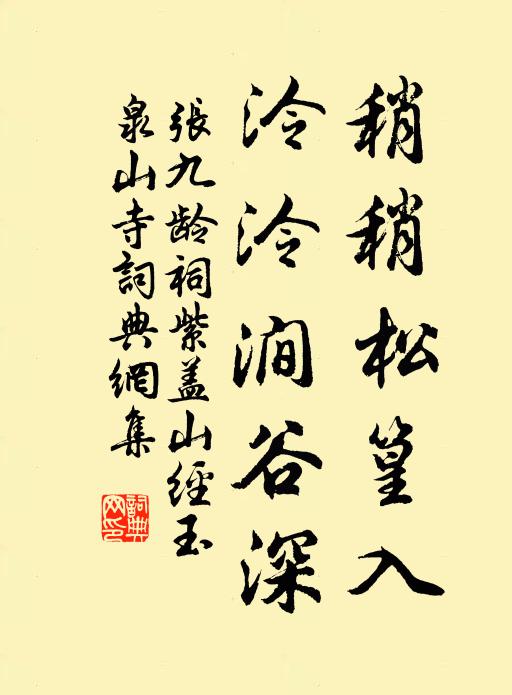 稍稍松篁入
泠泠澗谷深
張九龄祠紫盖山經玉
泉山寺詞典網集
詞典网印